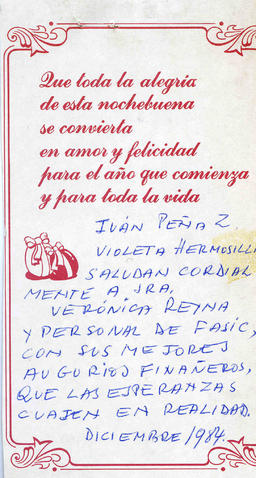 Que toda la alegría
de esta nochebuena
se convierta
en amor y felicidad
para el año que comienza
y para toda la vida
IVÁN PEÑA Z.
VIOLETA HERMOSILL
SALUDAN CORDIAL
MENTE A SRA.
VERÓNICA REYNA
Y PERSONAL DE FASIC,
CON SUS MEJORES
AUGURIOS FINAÑEROS,
QUE LAS ESPERANZAS
CUAJEN EN REALIDAD.
DICIEMBRE/984.